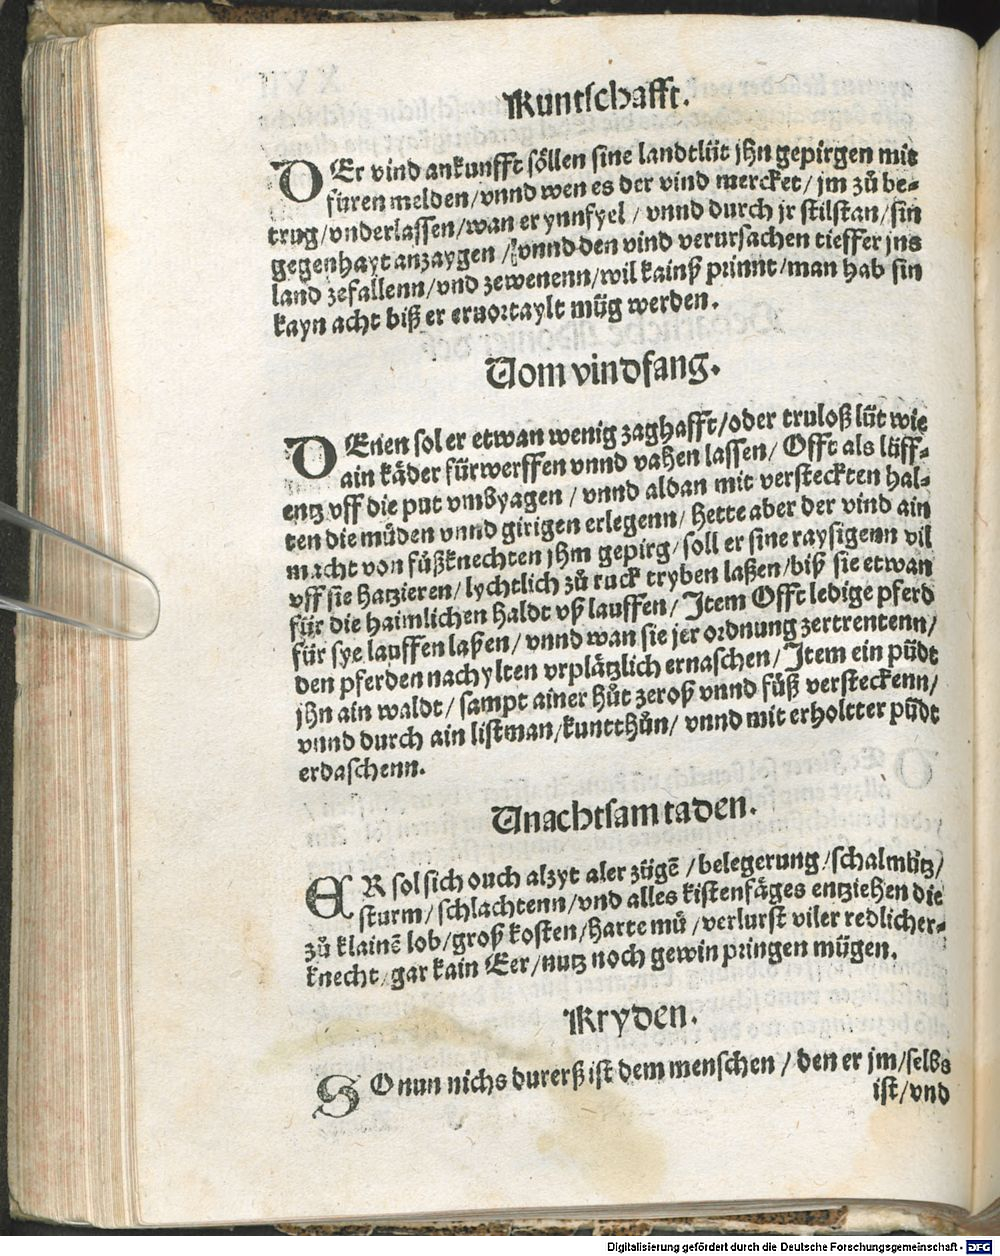 Kuntschafft.
DEr vind ankunfft söllen sine landtlüt jhn gepirgen mit
füren melden/vnnd wen es der vind mercket/jm zů be-
trug/vnderlassen/wan er ynnfyel/vnnd durch jr stilstan/sin
gegenhayt anzaygen/vnnd den vind verursachen tieffer jns
land zefallenn/vnd zewenenn/wil kainß prinnt/man hab sin
kayn acht biß er eruortaylt müg werden.
Vom vindfang.
DEnen sol er etwan wenig zaghafft/oder truloß lüt wie
ain käder fürwerffen vnnd vahen lassen/Offt als lüff-
entz vff die put vmbyagen/vnnd aldan mit versteckten hal-
ten die müden vnnd girigen erlegenn/hette aber der vind ain
macht von fůßknechten jhm gepirg/soll er sine raysigenn vil
vff sie hatzieren/lychtlich zů ruck tryben laßen/biß sie etwan
für die haimlichen haldt vß lauffen/Item Offt ledige pferd
für sye lauffen laßen/vnnd wan sie jer ordnung zertrentenn/
den pferden nachylten vrplätzlich ernaschen/Item ein püdt
jhn ain waldt/sampt ainer hůt zeroß vnnd fůß versteckenn/
vnnd durch ain listman/kuntthůn/vnnd mit erholtter püdt
erdaschenn.
Vnachtsam taden.
ER sol sich ouch alzyt aler zügē/belegerung/schalmütz/
sturm/schlachtenn/vnd alles kistenfäges entziehen die
zů klainē lob/groß kosten/harte mü/verlurst viler redlicher-
knecht/gar kain Eer/nutz noch gewin pringen mügen.
Kryden.
SO nun nichs durerß ist dem menschen/den er jm/selbs
ist/vnd
Digitalisierung gefördert durch die Deutsche Forschungsgemeinschaft - DFG